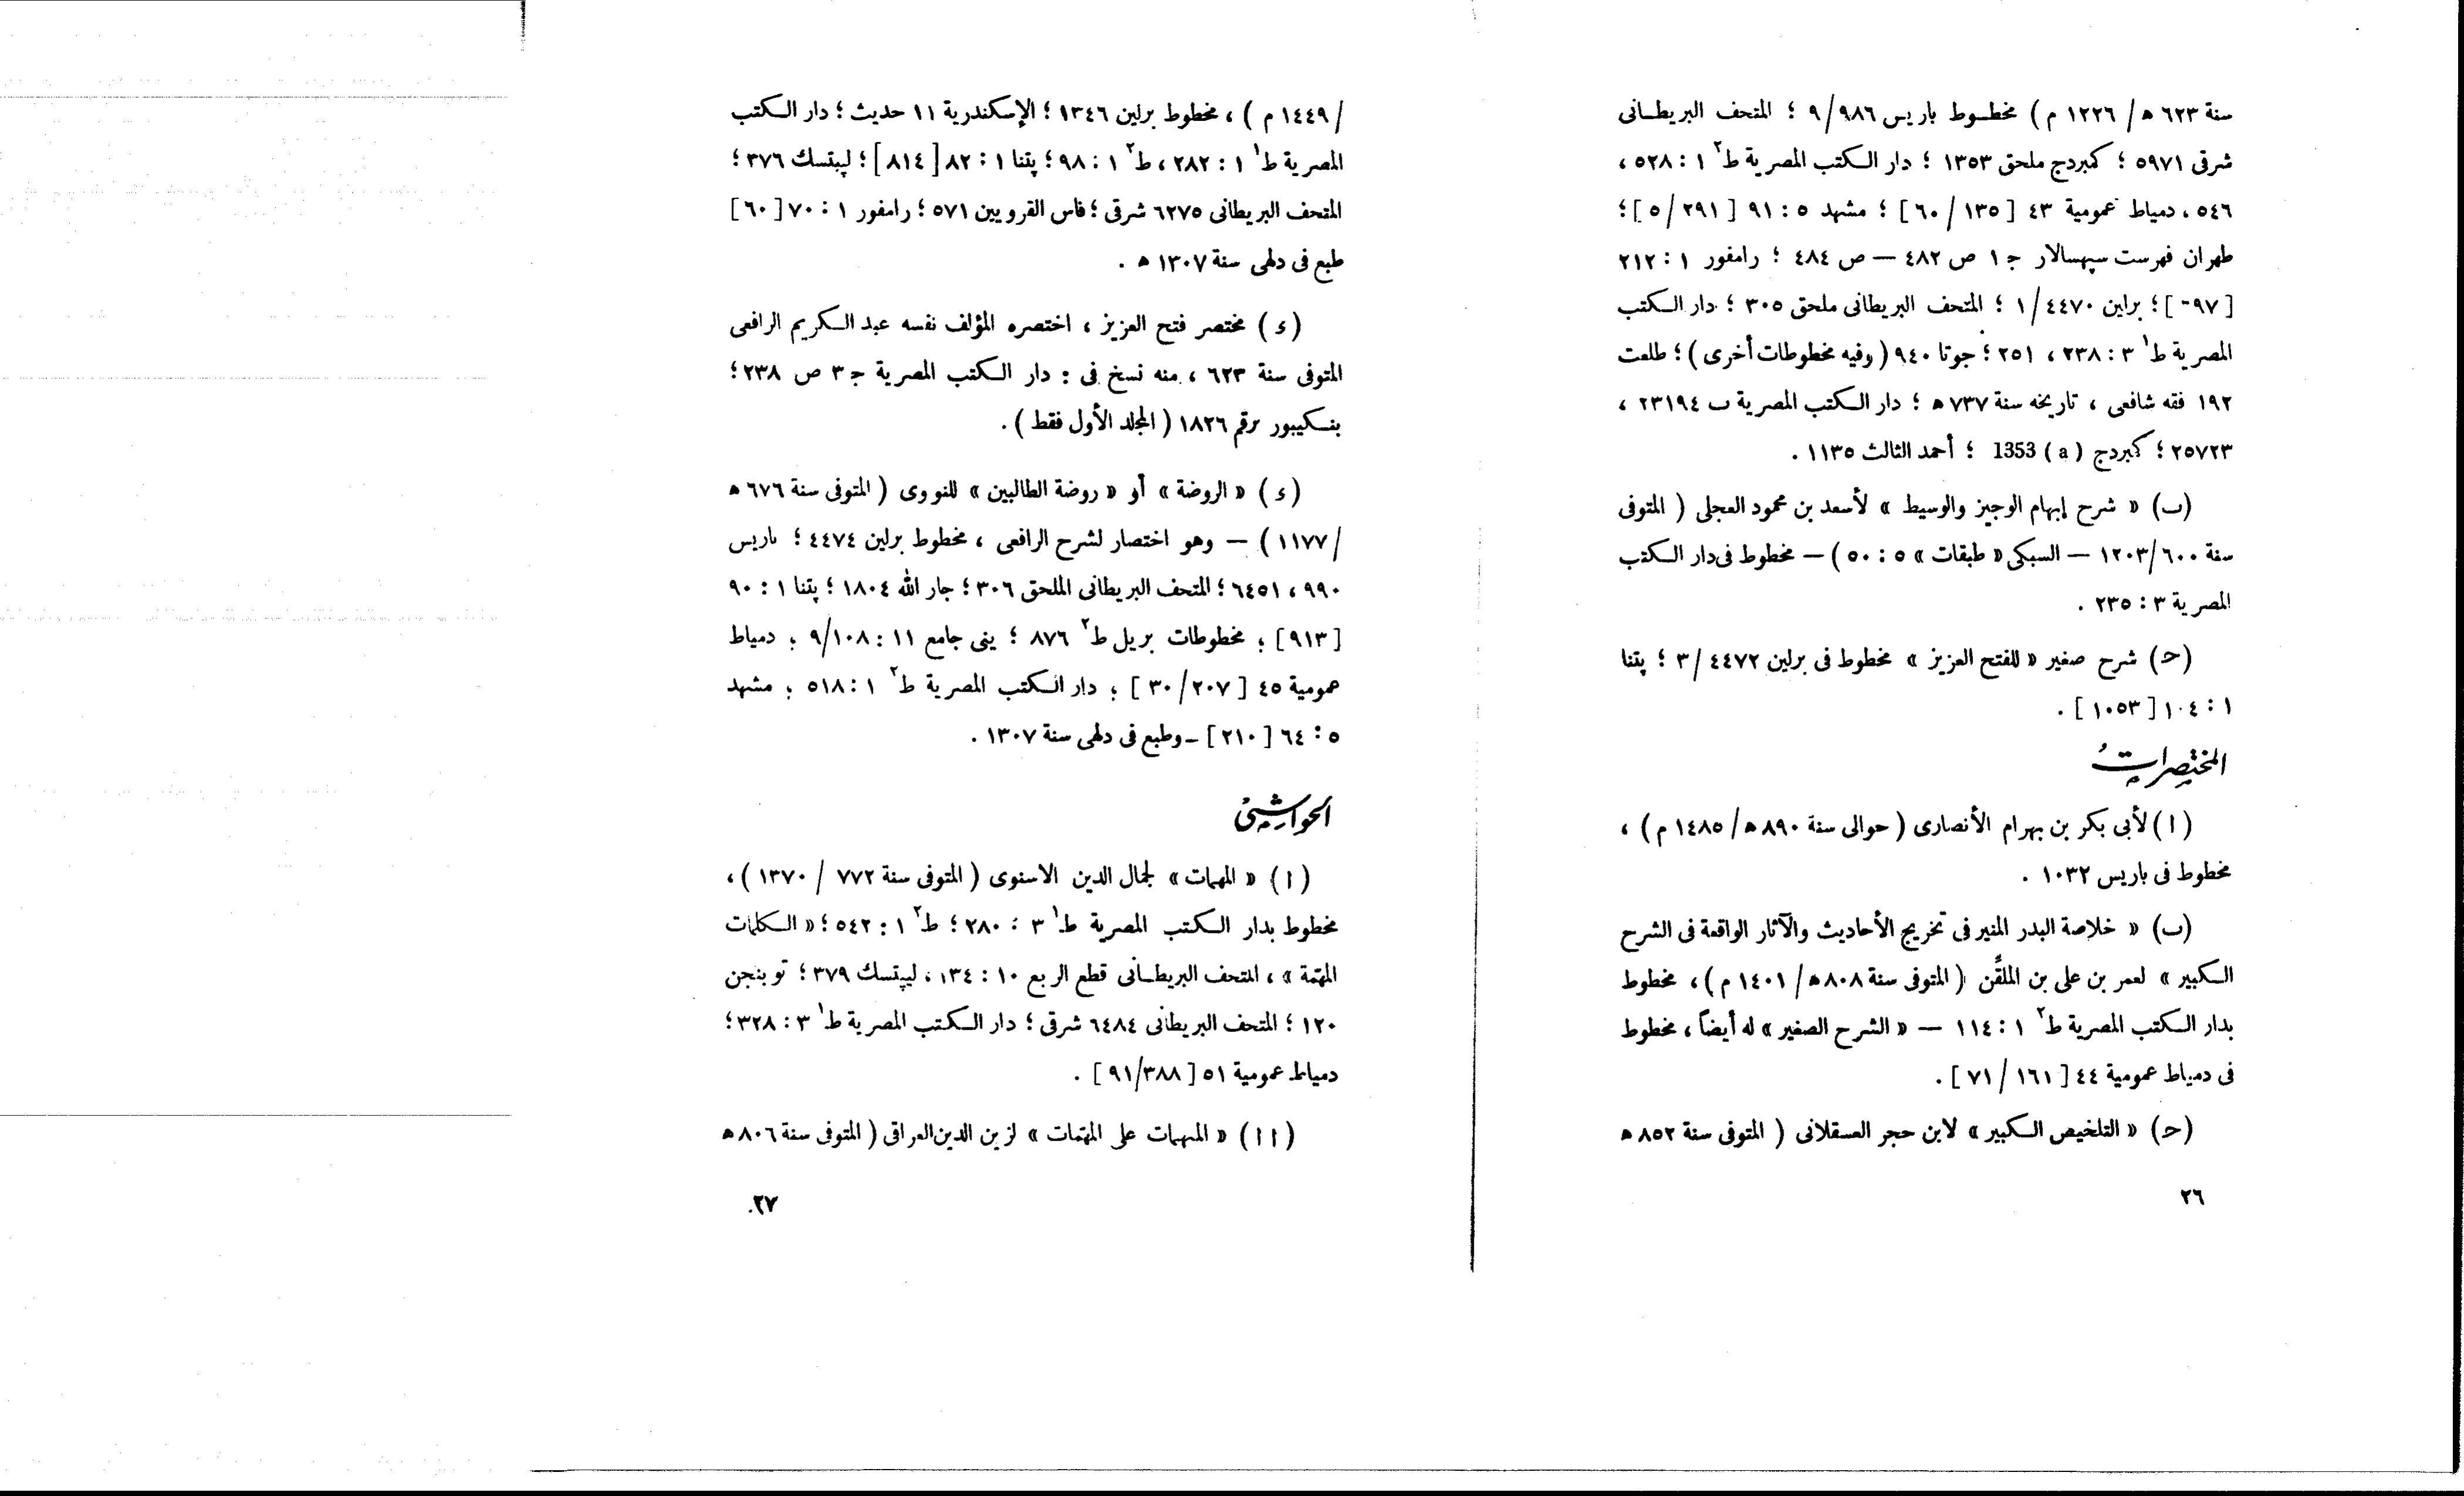 سنة ٦٢٣ ه / ١٢٢٦ م ) مخطوط باريس ٩/٩٨٦ ؛ المتحف البريطانى
شرقى ٥٩٧١ ؛ كمبردج ملحق ١٣٥٣ ؛ دار الكتب المصرية ط٢ ١ : ٥٢٨ ،
٥٤٦ ، دمياط عمومية ٤٣ [ ١٣٥ / ٦٠ ] ؛ مشهد ٥ : ٩١ [ ٢٩١ / ٥ ] ؛
طهران فهرست سپهسالار ج ١ ص ٤٨٢ — ص ٤٨٤ ؛ رامفور ١ : ٢١٢
[ ٩٧- ] ؛ براين ٤٤٧٠ / ١ ؛ المتحف البريطانى ملحق ٣٠٥ ؛ دار الكتب
المصرية ط١ ٣ : ٢٣٨ ، ٢٥١ ؛ جوتا ٩٤٠ ( وفيه مخطوطات أخرى ) ؛ طلعت
١٩٢ فقه شافعى ، تاريخه سنة ٧٣٧ ه ؛ دار الكتب المصرية ب ٢٣١٩٤ ،
٢٥٧٢٣ ؛ كمبردج 1353 ( a ) ؛ أحمد الثالث ١١٣٥ .
(ب) « شرح إبهام الوجيز والوسيط » لأسعد بن محمود العجلى ( المتوفى
سنة ٦٠٠ / ١٢٠٣ — السبكى « طبقات » ٥ : ٥٠ ) — مخطوط فى دار الكتب
المصرية ٣ : ٢٣٥ .
(ح) شرح صغير « للفتح العزيز » مخطوط فى برلين ٤٤٧٢ / ٣ ؛ پتنا
١ : ١٠٤ [ ١٠٥٣ ] .
المختصرات
( ا ) لأبى بكر بن بهرام الأنصارى ( حوالى سنة ٨٩٠ ه / ١٤٨٥ م ) ،
مخطوط فى باريس ١٠٣٢ .
(ب) « خلاصة البدر المنير فى تخريج الأحاديث والآثار الواقعة فى الشرح
الكبير » لعمر بن على بن الملقّن ( المتوفى سنة ٨٠٨ ه / ١٤٠١ م ) ، مخطوط
بدار الكتب المصرية ط٢ ١ : ١١٤ — « الشرح الصغير » له أيضاً ، مخطوط
فى دمياط عمومية ٤٤ [ ١٦١ / ٧١ ] .
(ح) « التلخيص الكبير » لابن حجر العسقلانى ( المتوفى سنة ٨٥٢ ه
٢٦
/ ١٤٤٩ م ) ، مخطوط برلين ١٣٤٦ ؛ الإسكندرية ١١ حديث ؛ دار الكتب
المصرية ط١ ١ : ٢٨٢ ، ط٢ ١ : ٩٨ ؛ پتنا ١ : ٨٢ [ ٨١٤ ] ؛ ليبتسك ٣٧٦ ؛
المتحف البريطانى ٦٢٧٥ شرقى ؛ فاس القرويين ٥٧١ ؛ رامفور ١ : ٧٠ [ ٦٠ ]
طبع فى دلهى سنة ١٣٠٧ ه .
( ء ) مختصر فتح العزيز ، اختصره المؤلف نفسه عبد الكريم الرافعى
المتوفى سنة ٦٢٣ ، منه نسخ فى : دار الكتب المصرية ج ٣ ص ٢٣٨ ؛
بنكيبور برقم ١٨٢٦ ( المجلد الأول فقط ) .
( ء ) « الروضة » أو « روضة الطالبين » للنووى ( المتوفى سنة ٦٧٦ ه
/ ١١٧٧ ) — وهو اختصار لشرح الرافعى ، مخطوط برلين ٤٤٧٤ ؛ باريس
٩٩٠ ، ٦٤٥١ ؛ المتحف البريطانى الملحق ٣٠٦ ؛ جار الله ١٨٠٤ ؛ پتنا ١ : ٩٠
[ ٩١٣ ] ؛ مخطوطات بريل ط٢ ٨٧٦ ؛ ينى جامع ١١ : ٩/١٠٨ ؛ دمياط
عمومية ٤٥ [ ٢٠٧ / ٣٠ ] ؛ دار الكتب المصرية ط٢ ١ : ٥١٨ ؛ مشهد
٥ : ٦٤ [ ٢١٠ ] ـ وطبع فى دلهى سنة ١٣٠٧ .
الحواشى
( ا ) « المهمات » لجمال الدين الاسنوى ( المتوفى سنة ٧٧٢ / ١٣٧٠ ) ،
مخطوط بدار الكتب المصرية ط١ ٣ : ٢٨٠ ؛ ط٢ ١ : ٥٤٢ ؛ « الكلمات
المهمّة » ، المتحف البريطانى قطع الربع ١٠ : ١٣٤ ، ليبتسك ٣٧٩ ؛ توبنجن
١٢٠ ؛ المتحف البريطانى ٦٤٨٤ شرقى ؛ دار الكتب المصرية ط١ ٣ : ٣٢٨ ؛
دمياط عمومية ٥١ [ ٩١/٣٨٨ ] .
( ١١ ) « المبهمات على المهمّات » لزين الدين العراقى ( المتوفى سنة ٨٠٦ ه
٢٧.